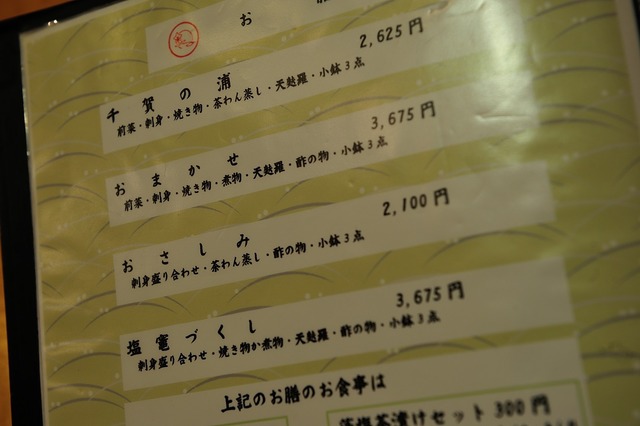 お
千賀の浦 2,625円
前菜・刺身・焼き物・茶わん蒸し・天麩羅・小鉢3点
おまかせ 3,675円
前菜・刺身・焼き物・煮物・天麩羅・酢の物・小鉢3点
おさしみ 2,100円
刺身盛り合わせ・茶わん蒸し・酢の物・小鉢3点
塩竈づくし 3,675円
刺身盛り合わせ・焼き物か煮物・天麩羅・酢の物・小鉢3点
上記のお膳のお食事は
藻塩茶漬けセット 300円